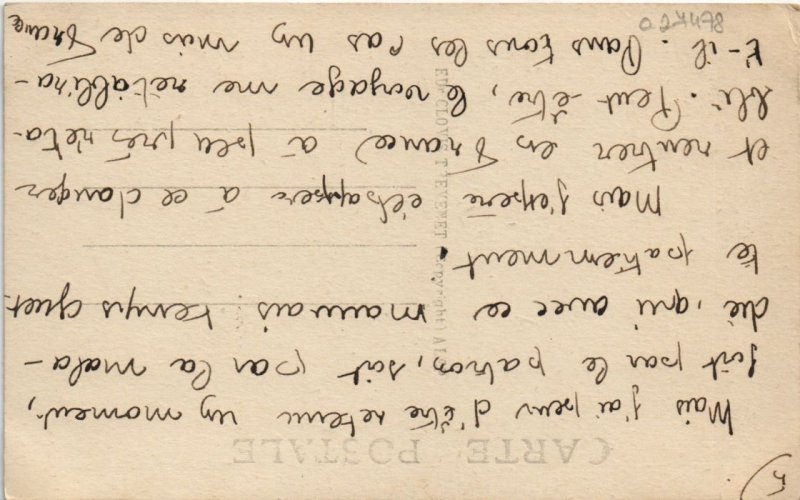 5)
CARTE POSTALE
Mais j'ai peur d'être retenu un moment,
soit par le patron, soit par la mala-
die, qui avec ce mauvais temps guet-
te patiemment.
Mais j'espère échapper à ce danger
et rentrer en France à peu près réta-
bli. Peut-être, le voyage me rétablira-
t-il. Dans tous les cas un mois de France
027478